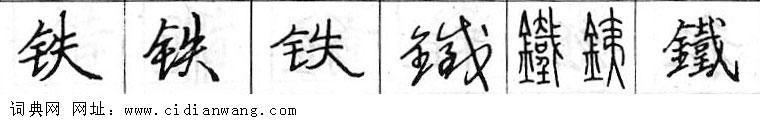 铁 铁 铁 鐵 鐵 銕 鐵
词典网 网址：www.cidianwang.com